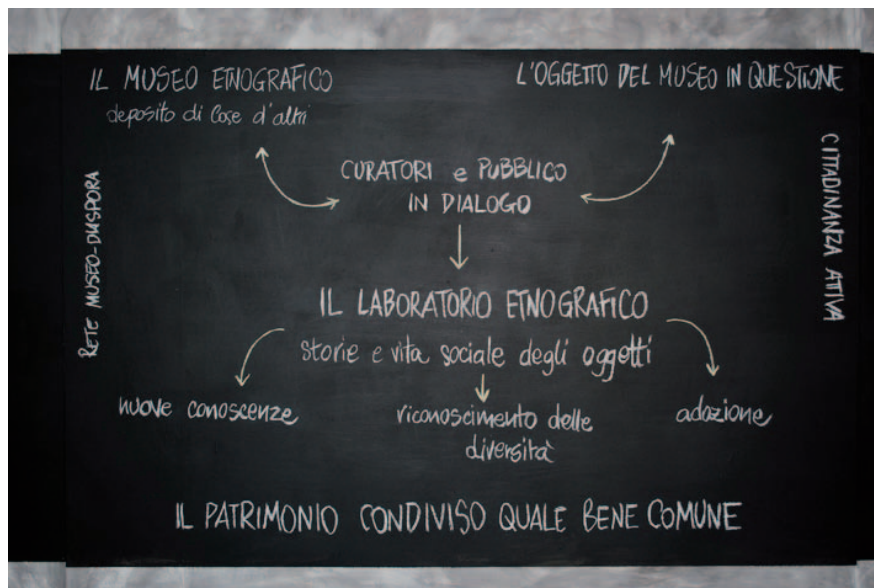 IL MUSEO ETNOGRAFICO
deposito di Cose d'altri
L'OGGETTO DEL MUSEO IN QUESTIONE
CURATORI e PUBBLICO
IN DIALOGO
RETE MUSEO-DIASPORA
CITTADINANZA ATTIVA
IL LABORATORIO ETNOGRAFICO
storie e vita sociale degli oggetti
nuove conoscenze
riconoscimento delle
diversità
adozione
IL PATRIMONIO CONDIVISO QUALE BENE COMUNE